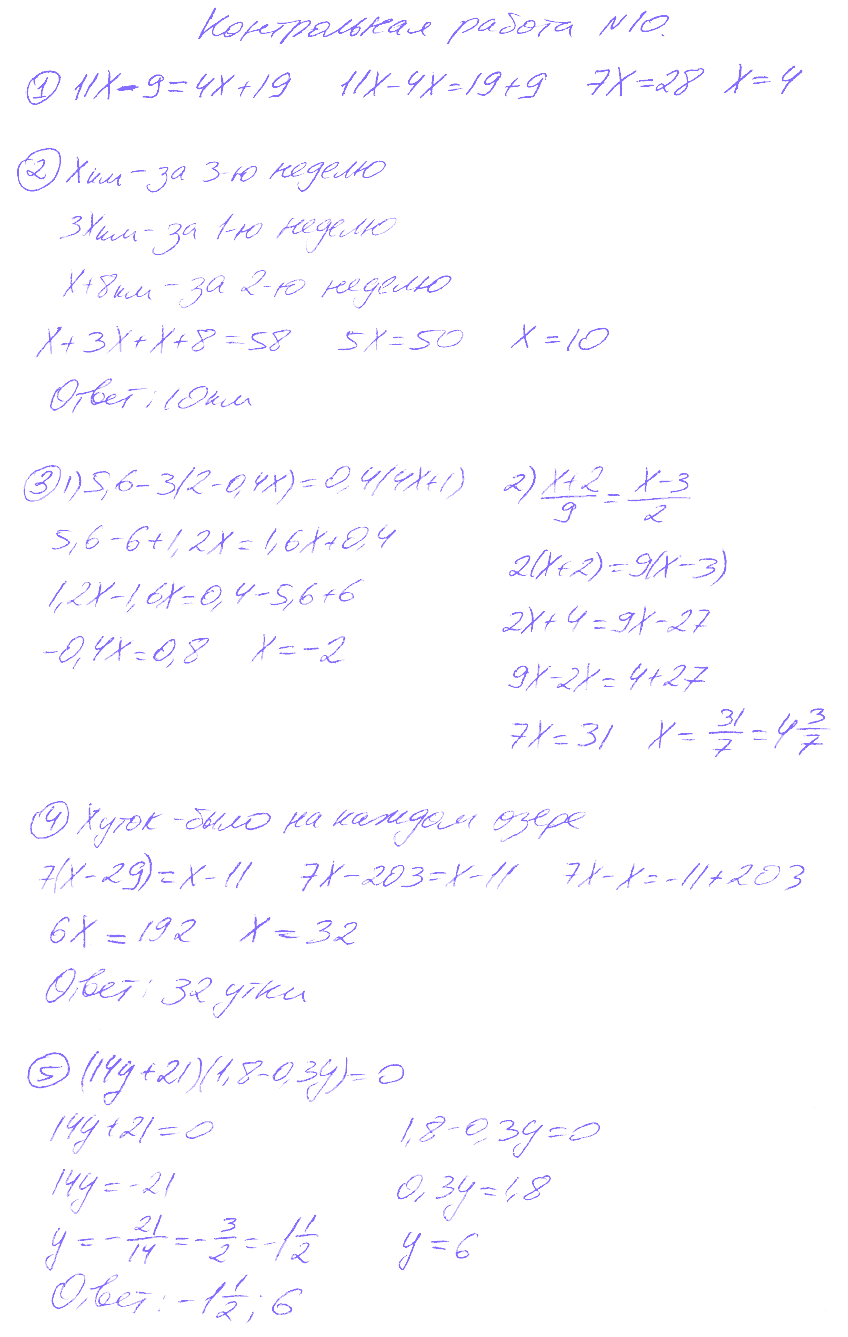 Контрольная работа №10.
① 11x-9=4x+19 11x-4x=19+9 7x=28 x=4
② x км - за 3-ю неделю
3x км - за 1-ю неделю
x+8 км - за 2-ю неделю
x+3x+x+8=58 5x=50 x=10
Ответ: 10 км
③ 1) 5,6-3(2-0,4x)=0,4(4x+1)
5,6-6+1,2x=1,6x+0,4
1,2x-1,6x=0,4-5,6+6
-0,4x=0,8 x=-2
2) (x+2)/9=(x-3)/2
2(x+2)=9(x-3)
2x+4=9x-27
9x-2x=4+27
7x=31 x=31/7=4 3/7
④ x уток - было на каждом озере
7(x-29)=x-11 7x-203=x-11 7x-x=-11+203
6x=192 x=32
Ответ: 32 утки
⑤ (14y+21)(1,8-0,3y)=0
14y+21=0 1,8-0,3y=0
14y=-21 0,3y=1,8
y=-21/14=-3/2=-1 1/2 y=6
Ответ: -1 1/2; 6